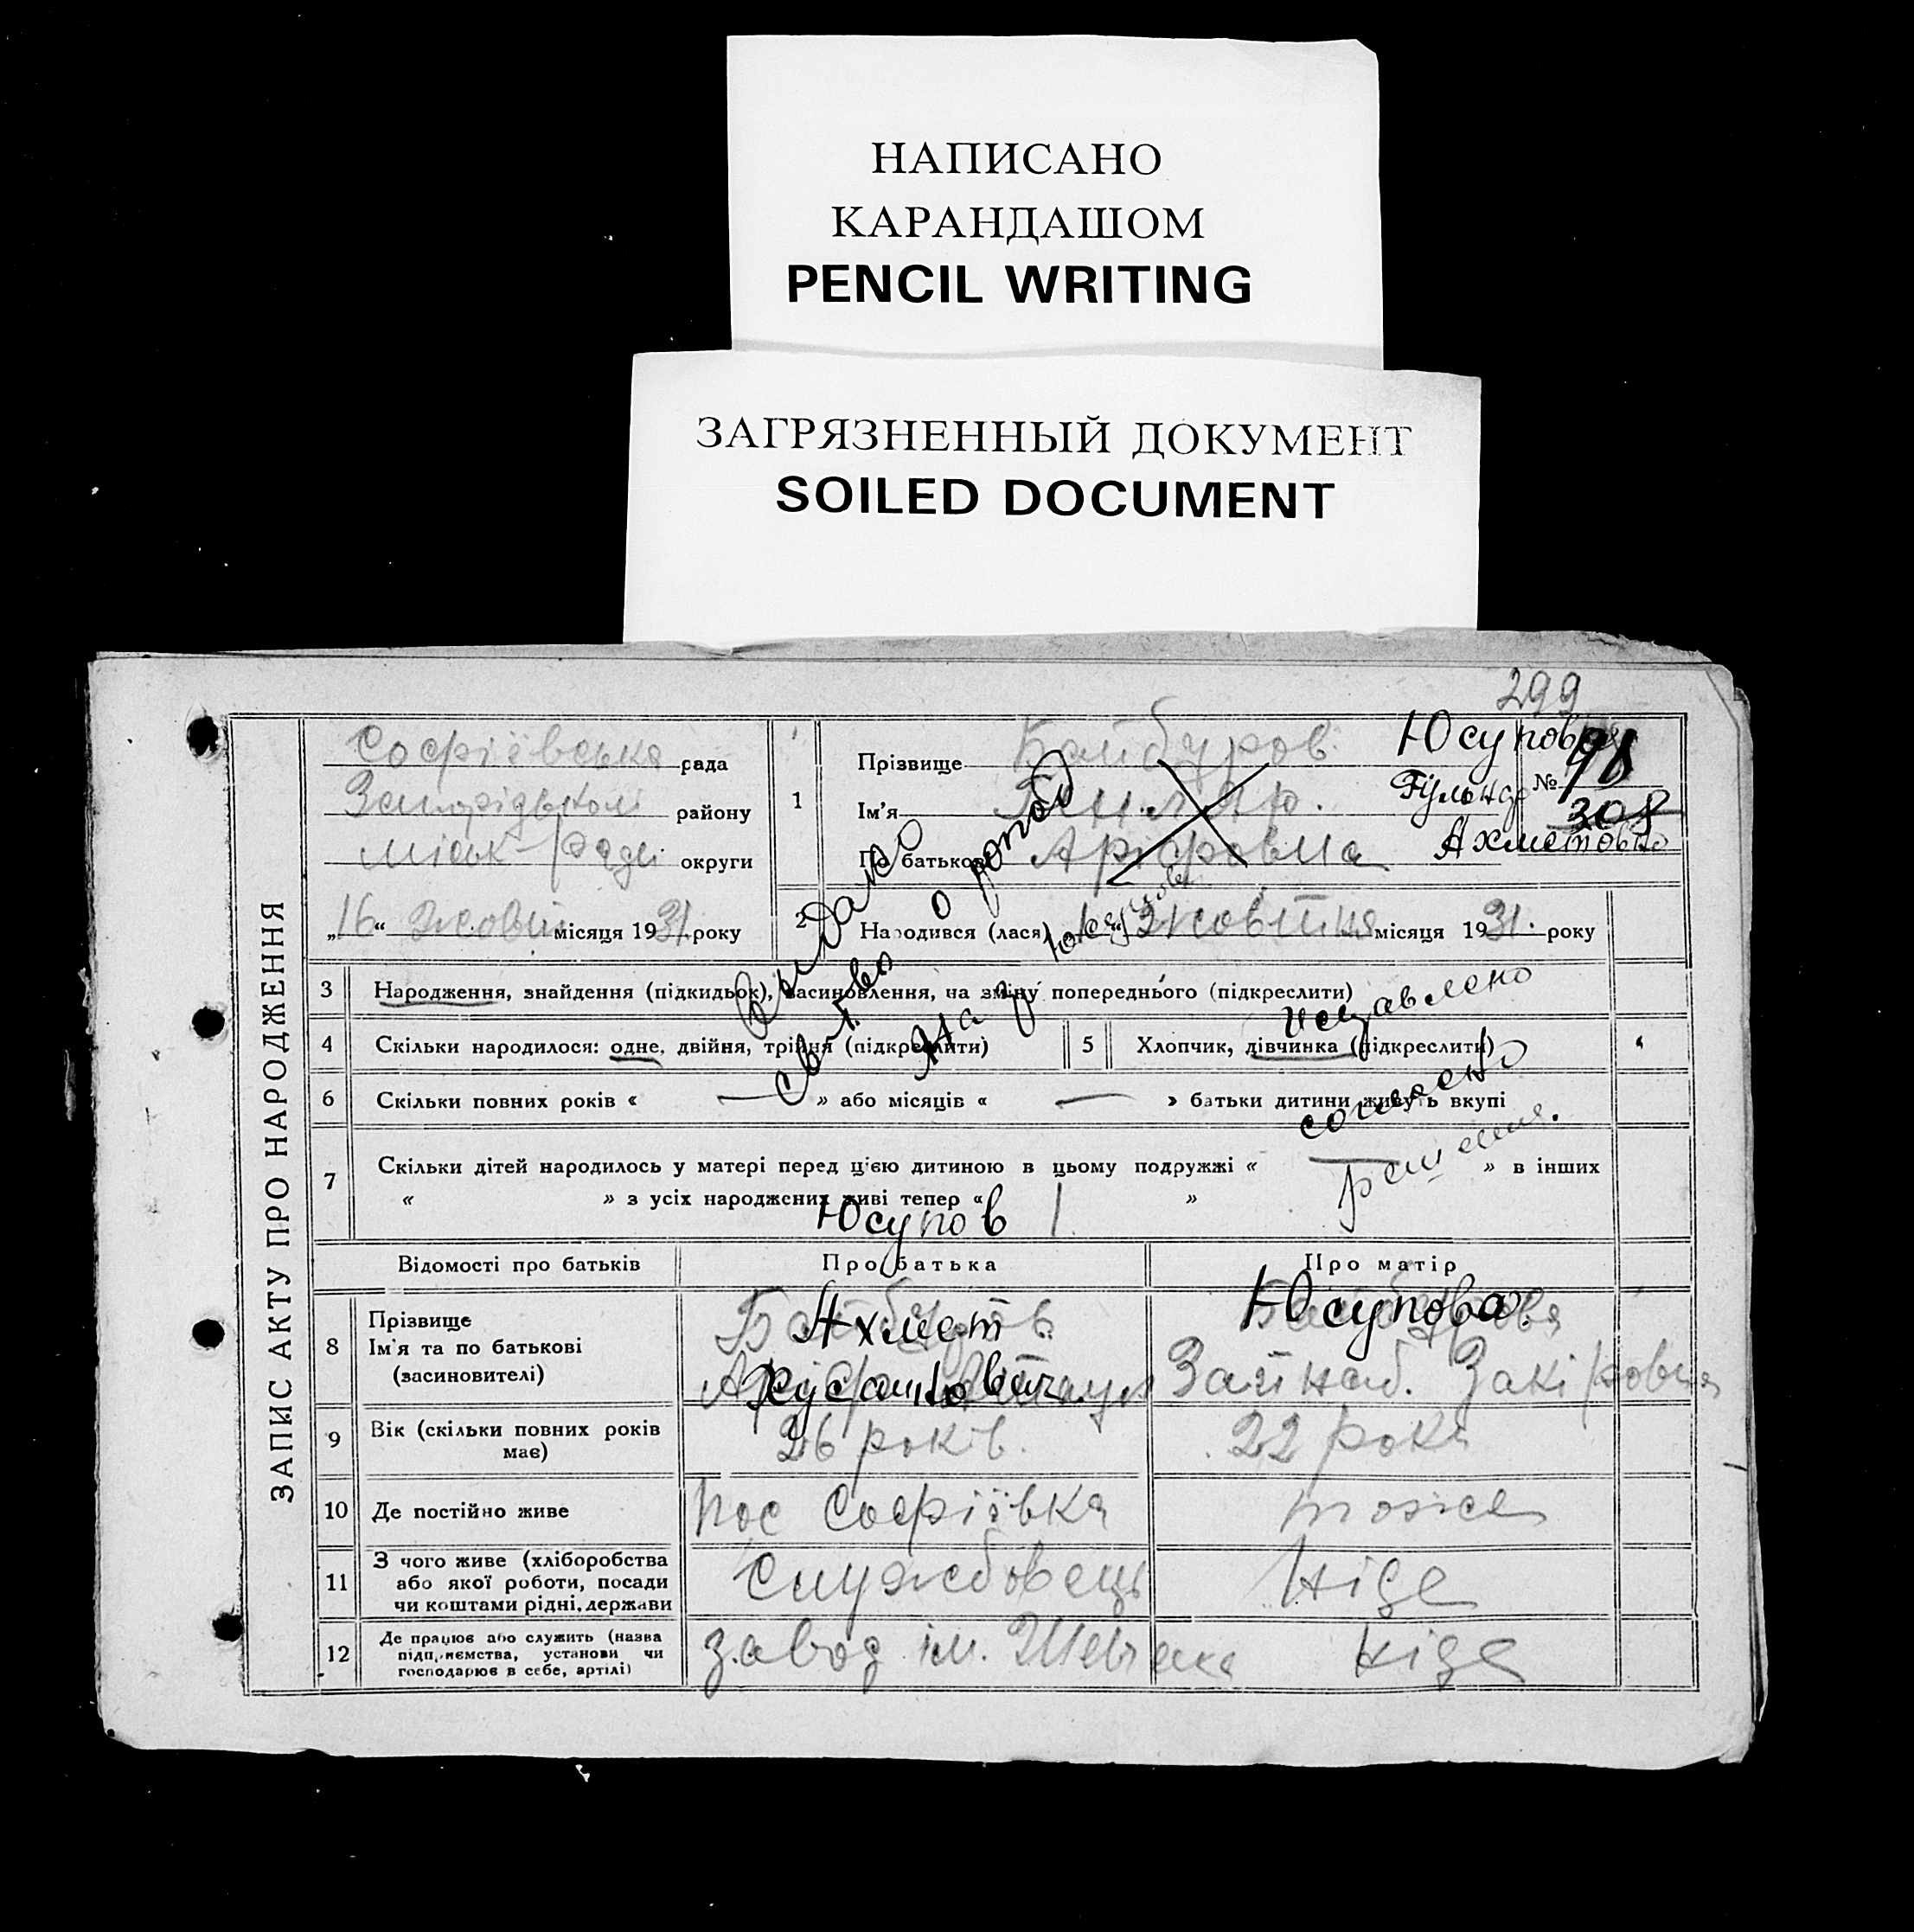 НАПИСАНО
КАРАНДАШОМ
PENCIL WRITING
ЗАГРЯЗНЕННЫЙ ДОКУМЕНТ
SOILED DOCUMENT
299
ЗАПИС АКТУ ПРО НАРОДЖЕННЯ
Софіївська рада
району
міськ-ради округи
„16“ жовтн місяця 1931 року
1
Прізвище Байбуров
Ім'я
По батькові Аріфовна
Юсупова
Ахметовна
№ 98
308
2
Народився (лася) жовтня місяця 1931. року
Видано
св-во о рожд
на
Исправлено
согласно
решения.
3 Народження, знайдення (підкидьок), засиновлення, на зміну попереднього (підкреслити)
4 Скільки народилося: одне, двійня, трійня (підкреслити)
5 Хлопчик, дівчинка (підкреслити)
6 Скільки повних років « — » або місяців « — » батьки дитини живуть вкупі
7 Скільки дітей народилось у матері перед цією дитиною в цьому подружжі « — » в інших
« » з усіх народжених живі тепер « 1 »
Відомості про батьків
Про батька
Про матір
8 Прізвище
Ім'я та по батькові
(засиновителі)
Юсупов
Ахмет
Байбуров
Хусаинович
Юсупова
Зайнаб. Закіровна
9 Вік (скільки повних років
має)
26 років.
22 роки
10 Де постійно живе
пос Софіївка
тоже
11 З чого живе (хліборобства
або якої роботи, посади
чи коштами рідні, держави
Службовець
Ніде
12 Де працює або служить (назва
підприємства, установи чи
господарює в себе, артілі)
завод ім.
ніде